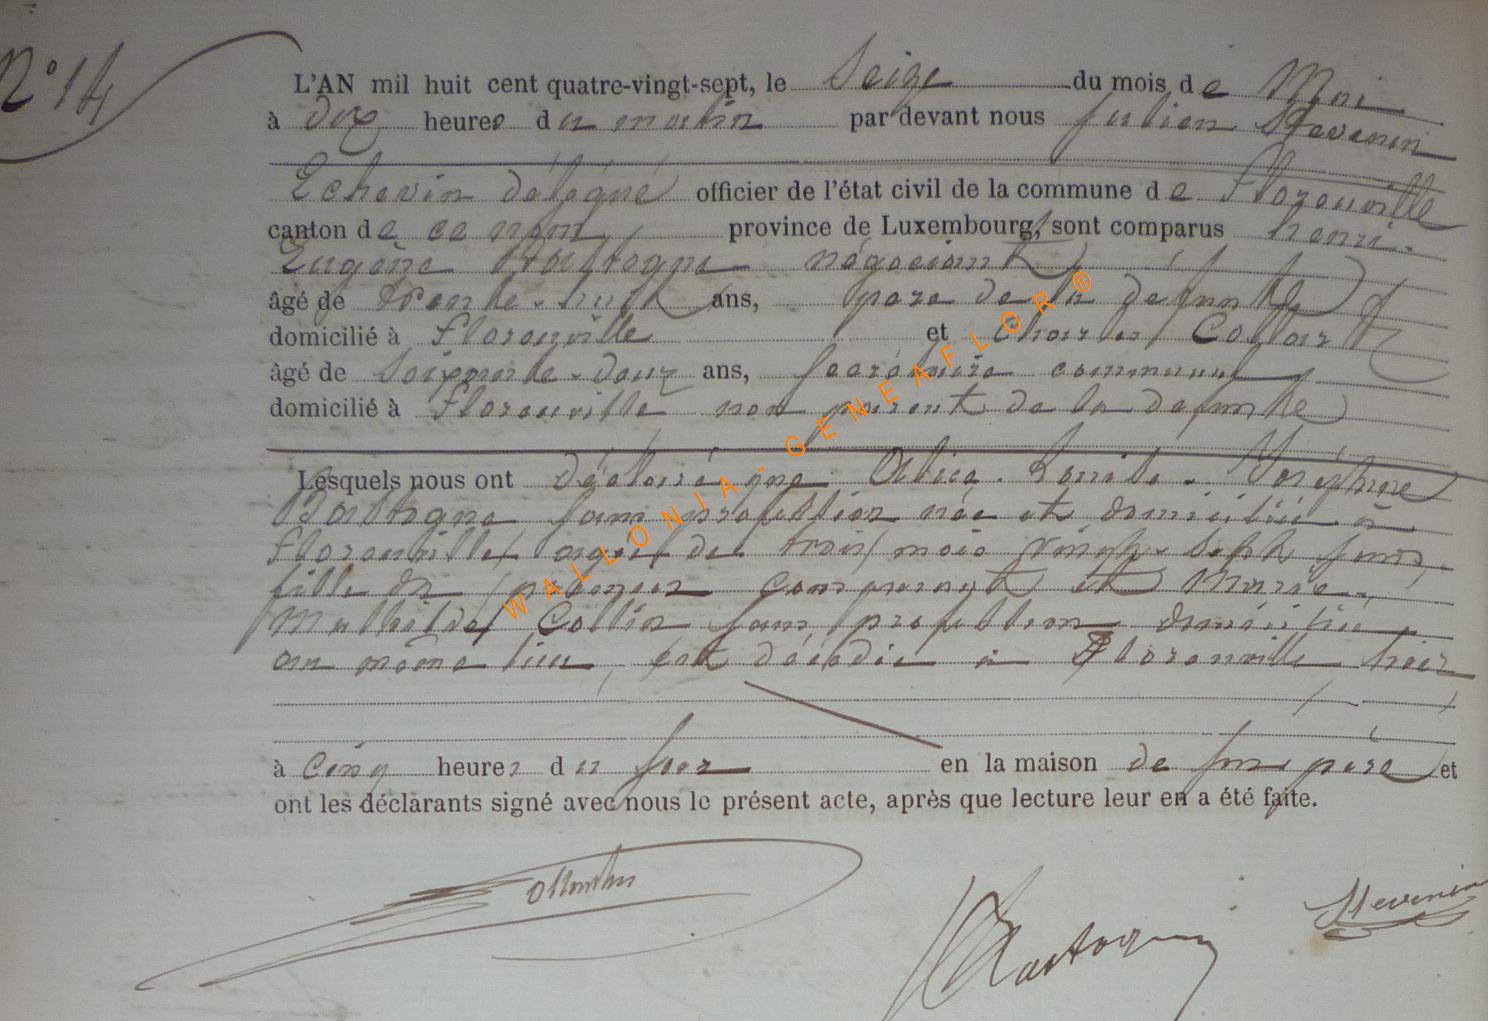 N° 14
L'AN mil huit cent quatre-vingt-sept, le Seize du mois de Mai
à dix heures du matin par devant nous Julien Stevenin
Echevin délégué officier de l'état civil de la commune de Florenville
canton de ce nom province de Luxembourg, sont comparus henri-
Eugène négociant
âgé de trente-huit ans, père de la défunte
domicilié à Florenville et Charles
âgé de Soixante-deux ans, Secrétaire communal
domicilié à Florenville non parent de la défunte
Lesquels nous ont déclaré que Alice-Louise-Joséphine
sans profession née et domiciliée à
Florenville, agée de trois mois vingt-sept jours,
fille du premier comparant et Marie-
Mathilde Collin sans profession domiciliée
au même lieu, est décédée à Florenville hier
à cinq heures du soir en la maison de son père et
ont les déclarants signé avec nous le présent acte, après que lecture leur en a été faite.
Stevenin
WALLONIA-GENEAFLOR®